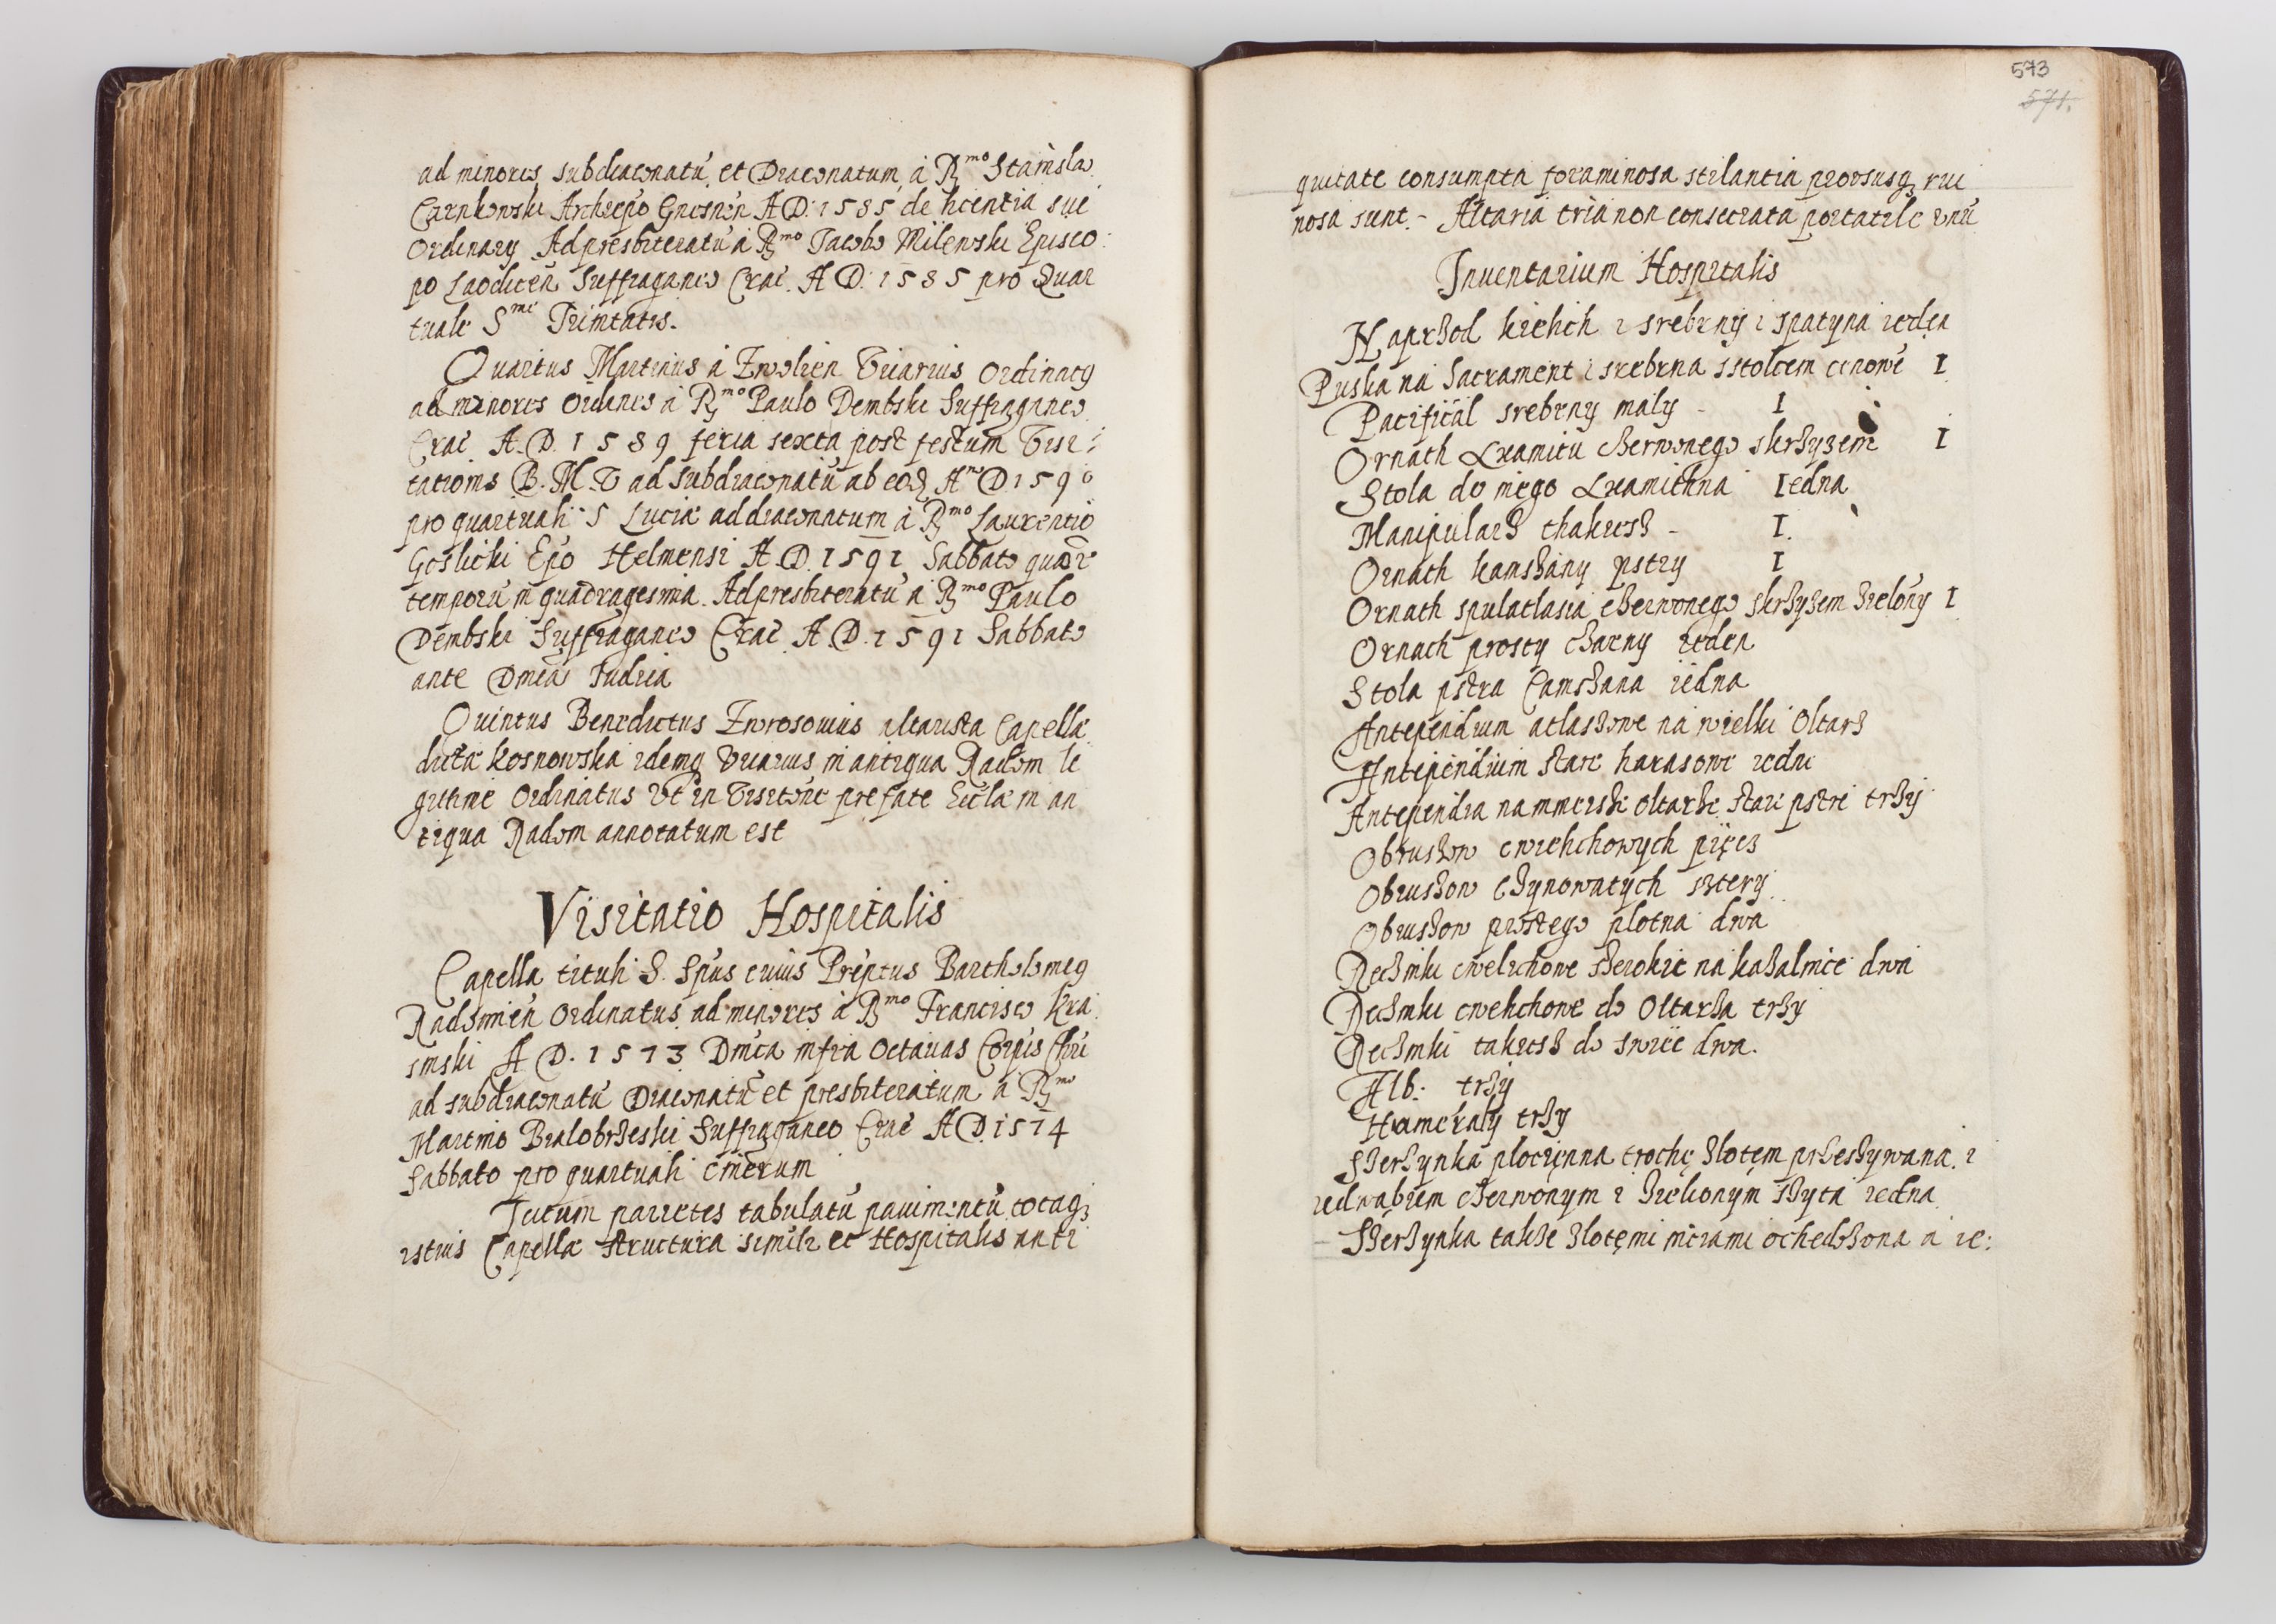 ad minores subdiaconatũ et Diaconatum à R^mo Stanislao
Carnkowski Archiepo Gnesnen A D. 1585 de licentia sui
Ordinarÿ Ad presbiteratũ à R^mo Jacobo Milewski Episco:
po Laodicen Suffraganeo Crac. A D. 1585 pro Quar
tuale S^me Trinitatis.
Quartus Martinus à Zwolien Vicarius Ordinatq
ad minores Ordines à R^mo Paulo Dembski Suffraganeo
Crac A. D. 1589 feria sexta post festum Visi:
tationis B. M. V ad subdiaconatũ ab eod A^no D. 1590
pro quartuali S Luciæ ad diaconatum à R^mo Laurentio
Goslicki Epo Helmensi A. D. 1591 Sabbato quaor
temporũ in quadragesima. Ad presbiteratũ à R^mo Paulo
Dembski Suffraganeo Crac A. D. 1591 Sabbato
ante Dmca Judica
Quintus Benedictus Zwrosouius altarista Capellæ
dictæ Kosnowska idemq Vicarius in antiqua Radom le
gitime Ordinatus vt in Visitone prefate Eccla in an
tiqua Radom annotatum est
Visitatio Hospitalis
Capella tituli S. Spus cuius Preptus Bartholomeq
Radomien Ordinatus ad minores à R^mo Francisco Kra
sinski A D. 1573 Dmca infra Octauas Corpis Chri
ad subdiaconatũ Diaconatũ et presbiteratum à R^mo
Martino Bialobrzeski Suffraganeo Crac A D. 1574
Sabbato pro quartuali Cinerum
Tectum parietes tabulatũ pauimentũ totaq3
istius Capellæ structura simile et Hospitalis anti
573
571.
quitate consumpta foraminosa stilantia prorsusq3 rui
nosa sunt. - Altaria tria non consecrata portatile vnũ
Inuentarium Hospitalis
Naprzod kielich i srebrnÿ i spatyna iedęn
Puska na Sacrament i srebrna sstolcem cinowẽ I
Pacificał srebrny maly - I
Ornath Axamitu czerwonego skrzyzem I
Stola do niego Axamithna Iedna
Manipularz thakiesz - I.
Ornath kamszany pstry I
Ornath spulatlasia czerwonego skrzyzem zielony I
Ornath prosty czarny ieden
Stola pstra Camszana iedna
Antependium atlaszowe na wielki Oltarz
Antependium stare harasowe iedne
Antependia na mneisze oltarze stare pstre trzÿ
Obruszow cwielichowych pięcz
Obruszow czynowatych sztery
Obruszow prostego plotna dwa
Reczniki cwelichowe szerokie na kazalnice dwa
Reczniki cwelichowe do Oltarza trzy
Reczniki takiesz do swiec dwa.
Alb: trzÿ
Humeraly trzy
Szerzynka plocięnna trochę zlotęm przeszywana. i
iedwabiem czerwonym i zielionym szyta iedna
Szerzynka takze zlotęmi nicami ochedozona a ie: